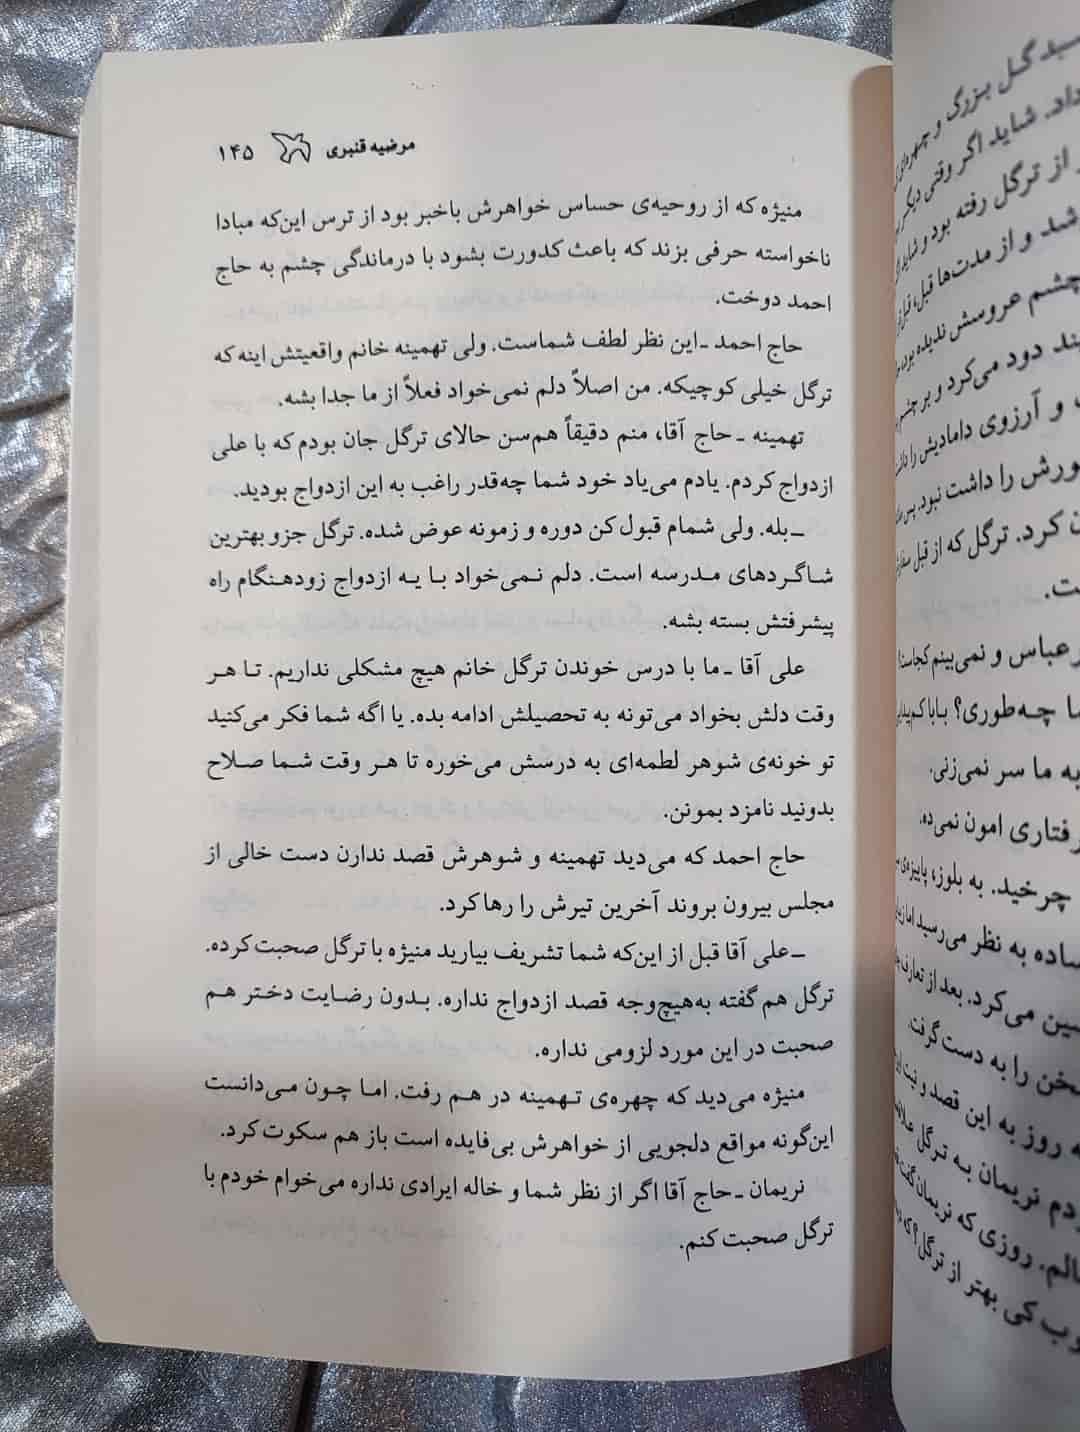 مرضیه قنبری ۱۴۵
منیژه که از روحیه‌ی حساس خواهرش باخبر بود از ترس این‌که مبادا
ناخواسته حرفی بزند که باعث کدورت بشود با درماندگی چشم به حاج
احمد دوخت.
حاج احمد ـ این نظر لطف شماست. ولی تهمینه خانم واقعیتش اینه که
ترگل خیلی کوچیکه. من اصلاً دلم نمی‌خواد فعلاً از ما جدا بشه.
تهمینه ـ حاج آقا، منم دقیقاً هم‌سن حالای ترگل جان بودم که با علی
ازدواج کردم. یادم می‌یاد خود شما چه‌قدر راغب به این ازدواج بودید.
ـ بله. ولی شمام قبول کن دوره و زمونه عوض شده. ترگل جزو بهترین
شاگردهای مدرسه است. دلم نمی‌خواد با یه ازدواج زودهنگام راه
پیشرفتش بسته بشه.
علی آقا ـ ما با درس خوندن ترگل خانم هیچ مشکلی نداریم. تا هر
وقت دلش بخواد می‌تونه به تحصیلش ادامه بده. یا اگه شما فکر می‌کنید
تو خونه‌ی شوهر لطمه‌ای به درسش می‌خوره تا هر وقت شما صلاح
بدونید نامزد بمونن.
حاج احمد که می‌دید تهمینه و شوهرش قصد ندارن دست خالی از
مجلس بیرون بروند آخرین تیرش را رها کرد.
ـ علی آقا قبل از این‌که شما تشریف بیارید منیژه با ترگل صحبت کرده.
ترگل هم گفته به‌هیچ‌وجه قصد ازدواج نداره. بدون رضایت دختر هم
صحبت در این مورد لزومی نداره.
منیژه می‌دید که چهره‌ی تهمینه در هم رفت. اما چون می‌دانست
این‌گونه مواقع دلجویی از خواهرش بی‌فایده است باز هم سکوت کرد.
نریمان ـ حاج آقا اگر از نظر شما و خاله ایرادی نداره می‌خوام خودم با
ترگل صحبت کنم.
سبد گل بزرگ و
داد. شاید اگر وقتی دیگر
از ترگل رفته بود و شاید
شد و از مدت‌ها قبل، قبل
چشم عروسش ندیده بود،
ند دود می‌کرد و بر چشم
و آرزوی دامادیش را
ورش را داشت نبود. پس
ن کرد. ترگل که از قبل
ت.
رعباس و نمی‌بینم کجاست؟
ما چه‌طوری؟ بابا کم
به ما سر نمی‌زنی.
رفتاری امون نمی‌ده.
چرخید. به بلوز، پاییزه‌ی
ساده به نظر می‌رسید اما
سین می‌کرد. بعد از تعارف
سخن را به دست گرفت.
ه روز به این قصد و نیت
دم نریمان به ترگل
الم. روزی که نریمان گفت
وب کی بهتر از ترگل؟ که